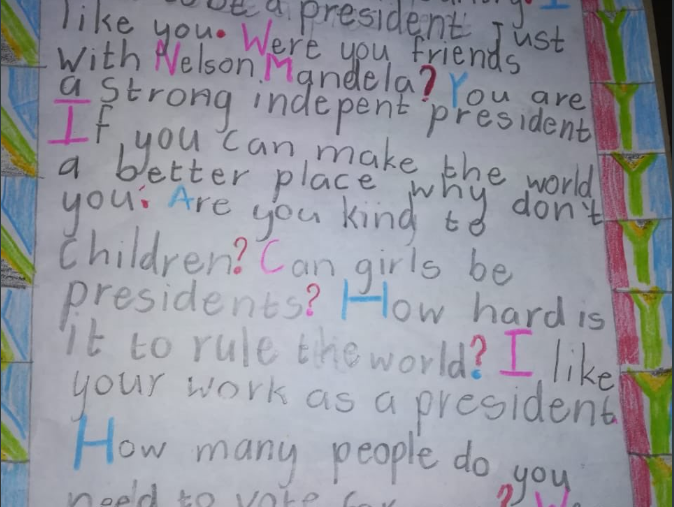 be a president. I Just
like you. Were you friends
with Nelson Mandela? You are
a strong indepent president
If you can make the world
a better place why don't
you. Are you kind to
children? Can girls be
presidents? How hard is
it to rule the world? I like
your work as a president
How many people do you
need to vote for ? W